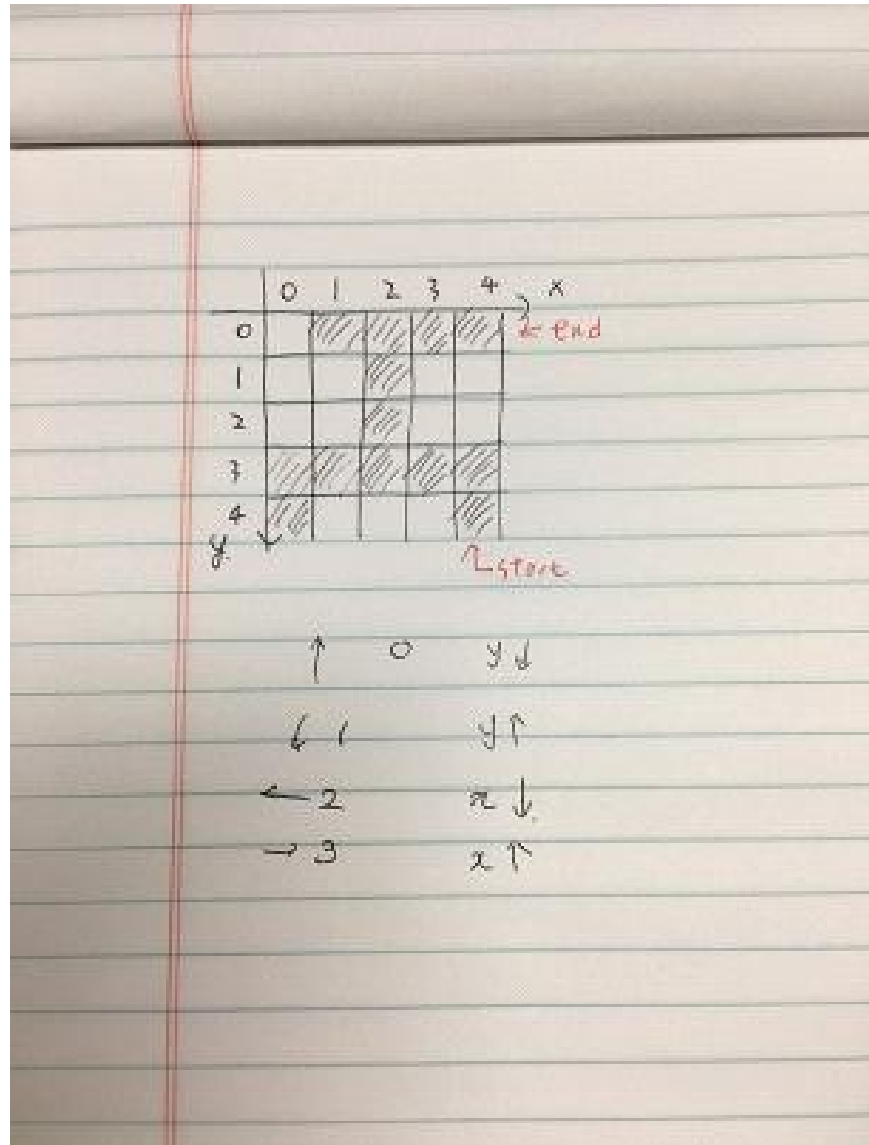 0 1 2 3 4 x
0 ← end
1
2
3
4
y
start
↑ 0 y ↓
↓ 1 y ↑
← 2 x ↓
→ 3 x ↑